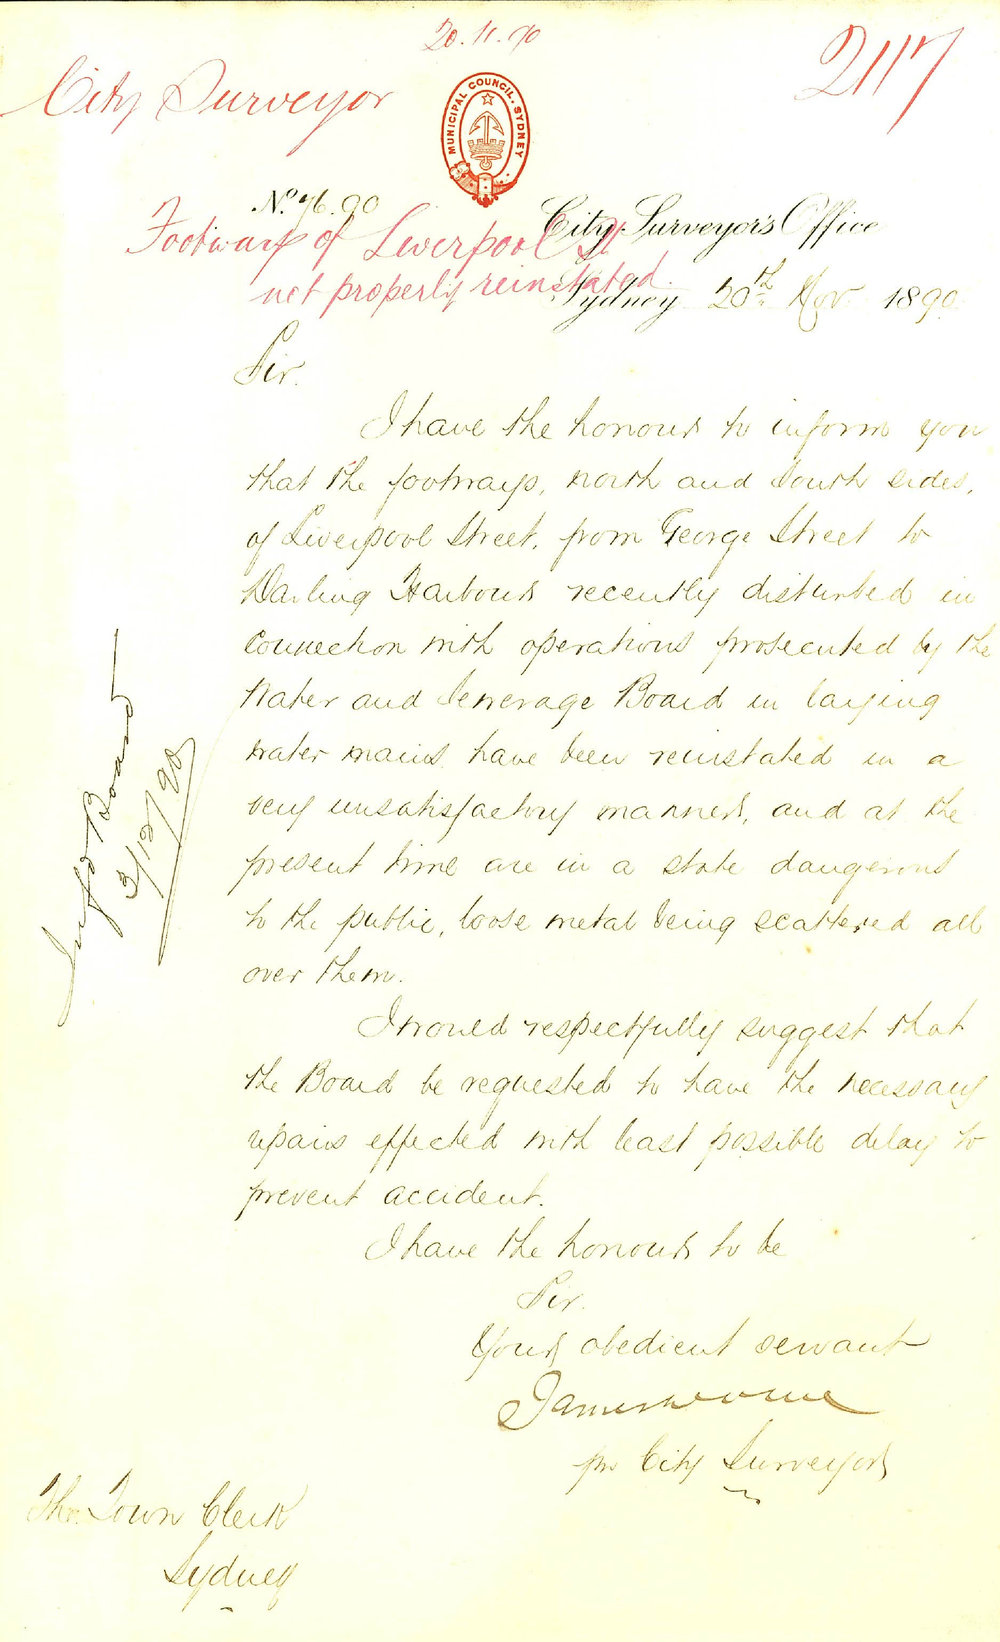 20.11.90
2117
City Surveyor
MUNICIPAL COUNCIL. SYDNEY
No. 76.90
City Surveyor's Office
Footways of Liverpool St
not properly reinstated.
Sydney 20th Nov. 1890
Sir.
I have the honour to inform you
that the footways, north and south sides,
of Liverpool Street, from George Street to
Darling Harbour recently disturbed in
connection with operations prosecuted by the
Water and Sewerage Board in laying
water mains have been reinstated in a
very unsatisfactory manner, and at the
present time are in a state dangerous
to the public, loose metal being scattered all
over them.
I would respectfully suggest that
the Board be requested to have the necessary
repairs effected with least possible delay to
prevent accident.
I have the honour to be
Sir.
Your obedient servant
James
pro City Surveyor
The Town Clerk
Sydney
Infd Board
3/12/90